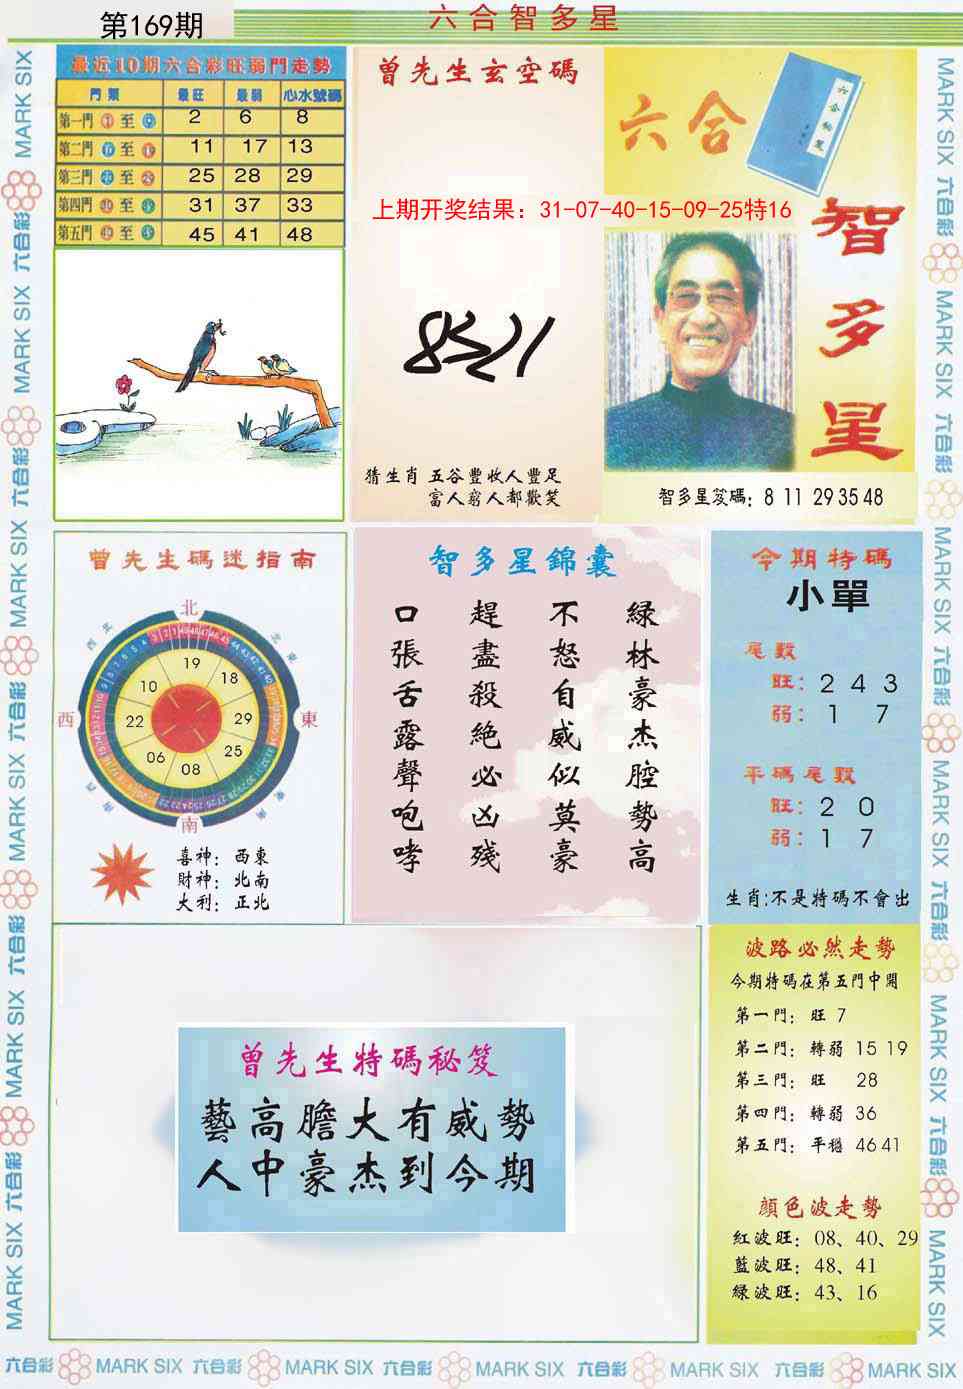 第169期
六合智多星
最近10期六合彩旺弱門走勢
門類 最旺 最弱 心水號碼
第一門 至 2 6 8
第二門 至 11 17 13
第三門 至 25 28 29
第四門 至 31 37 33
第五門 至 45 41 48
曾先生玄空碼
上期开奖结果：31-07-40-15-09-25特16
猜生肖 五谷豐收人豐足
富人窮人都歡笑
六合
智多星
智多星笈碼：8 11 29 35 48
曾先生碼迷指南
北
東
南
西
19
18
29
25
08
06
22
10
喜神：西東
財神：北南
大利：正北
智多星錦囊
綠林豪杰腔勢高
不怒自威似莫豪
趕盡殺絕必凶殘
口張舌露聲咆哮
今期特碼
小單
尾數
旺：2 4 3
弱：1 7
平碼尾數
旺：2 0
弱：1 7
生肖:不是特碼不會出
曾先生特碼秘笈
藝高膽大有威勢
人中豪杰到今期
波路必然走勢
今期特碼在第五門中開
第一門：旺 7
第二門：轉弱 15 19
第三門：旺 28
第四門：轉弱 36
第五門：平穩 46 41
顏色波走勢
紅波旺：08、40、29
藍波旺：48、41
綠波旺：43、16
六合彩 MARK SIX 六合彩 MARK SIX 六合彩 MARK SIX 六合彩 MARK SIX 六合彩 MARK SIX